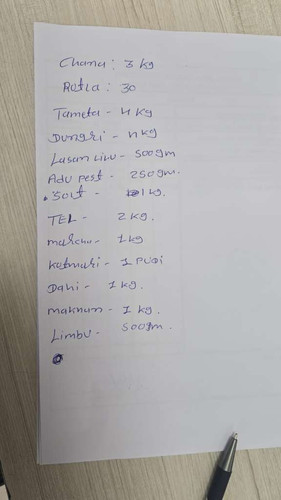 Chana : 3 kg
Rotla : 30
Tameta - 4 kg
Dungri - 4 kg
Lasan Lilu - 500gm
Adu pest - 250gm.
Solt - 1 kg.
TEL - 2 kg.
marchu - 1 kg
kotmari - 1 PUDi
Dahi - 1 kg.
makhun - 1 kg.
Limbu - 500gm.